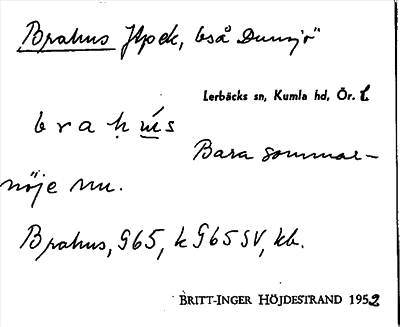 Brahus Jfpek, bså Dunsjö
Lerbäcks sn, Kumla hd, Ör. l.
b r a ḥ ú̲s
Bara sommar-
nöje nu.
Brahus, G65, k G65SV, kb.
BRITT-INGER HÖJDESTRAND 1952